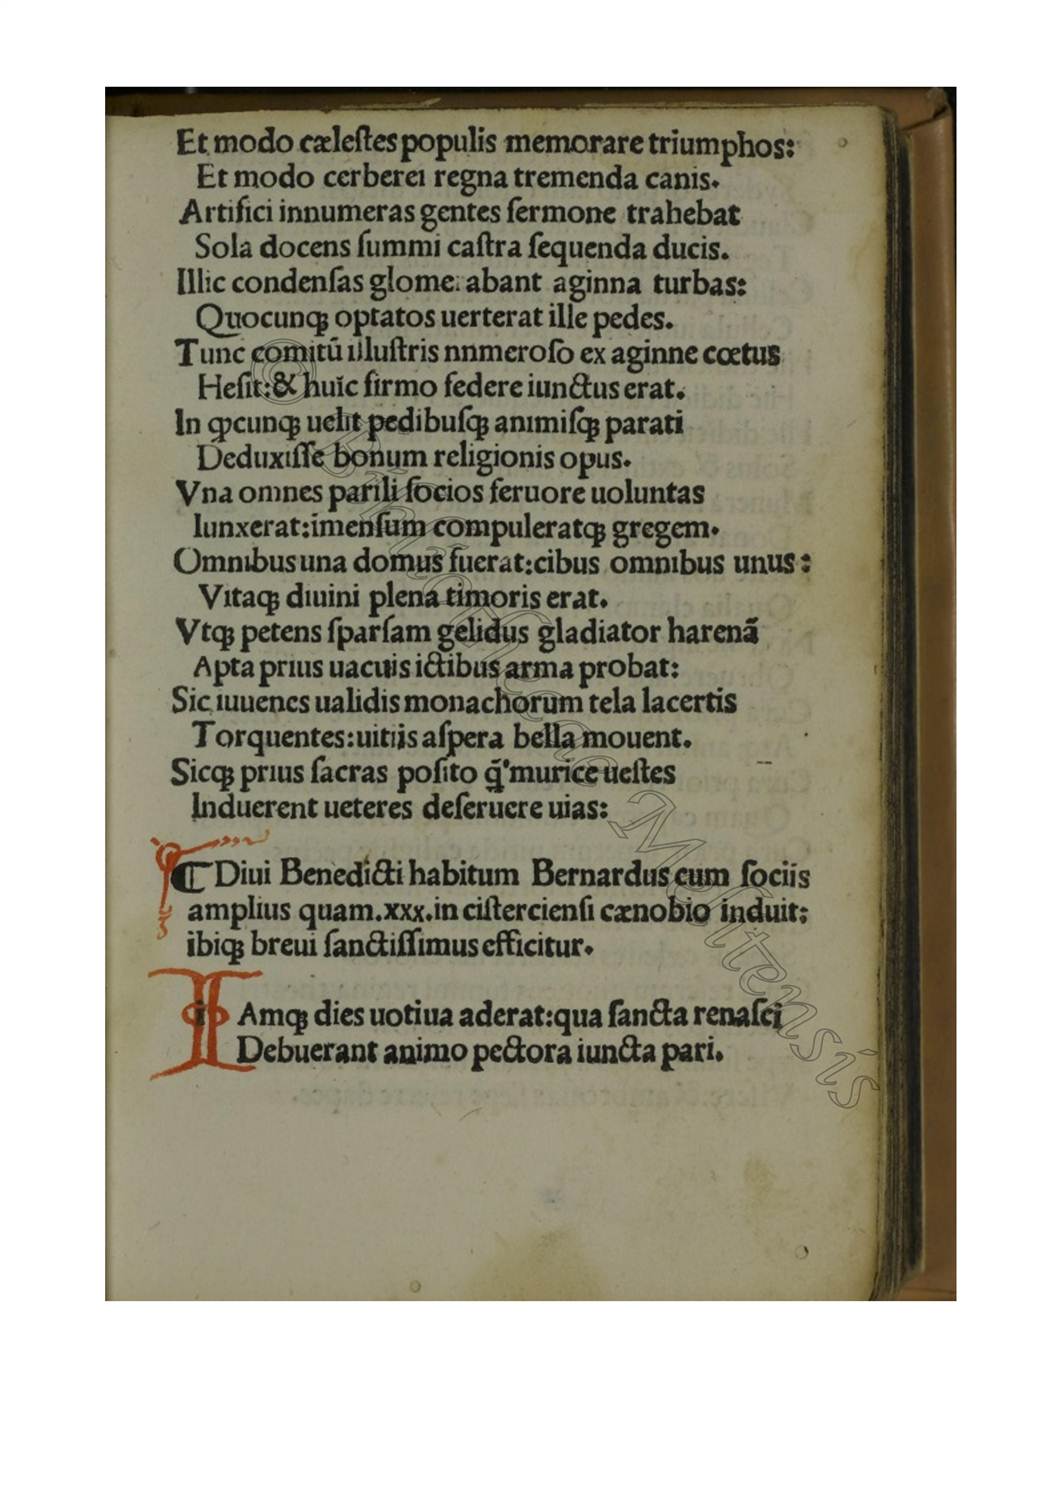 Et modo cæleſtes populis memorare triumphos:
Et modo cerberei regna tremenda canis.
Artifici innumeras gentes ſermone trahebat
Sola docens ſummi caſtra ſequenda ducis.
Illic condenſas glome abant aginna turbas:
Quocunqꝫ optatos uerterat ille pedes.
Tunc comitū illuſtris nnmeroſo ex aginne cœtus
Heſit:& huic firmo federe iunctus erat.
In qͦcunqꝫ uelit pedibuſqꝫ animiſqꝫ parati
Deduxiſſe bonum religionis opus.
Vna omnes parili ſocios feruore uoluntas
Iunxerat:imenſum compuleratqꝫ gregem.
Omnibus una domus fuerat:cibus omnibus unus:
Vitaqꝫ diuini plena timoris erat.
Vtqꝫ petens ſparſam gelidus gladiator harenā
Apta prius uacuis ictibus arma probat:
Sic iuuenes ualidis monachorum tela lacertis
Torquentes:uitiis aſpera bella mouent.
Sicqꝫ prius ſacras poſito q̄'murice ueſtes
Induerent ueteres deſeruere uias:
¶ Diui Benedicti habitum Bernardus cum ſociis
amplius quam.xxx.in ciſtercienſi cænobio induit:
ibiqꝫ breui ſanctiſſimus efficitur.
IAmqꝫ dies uotiua aderat:qua ſancta renaſci
Debuerant animo pectora iuncta pari.
© Bibliotheca Mellicensis